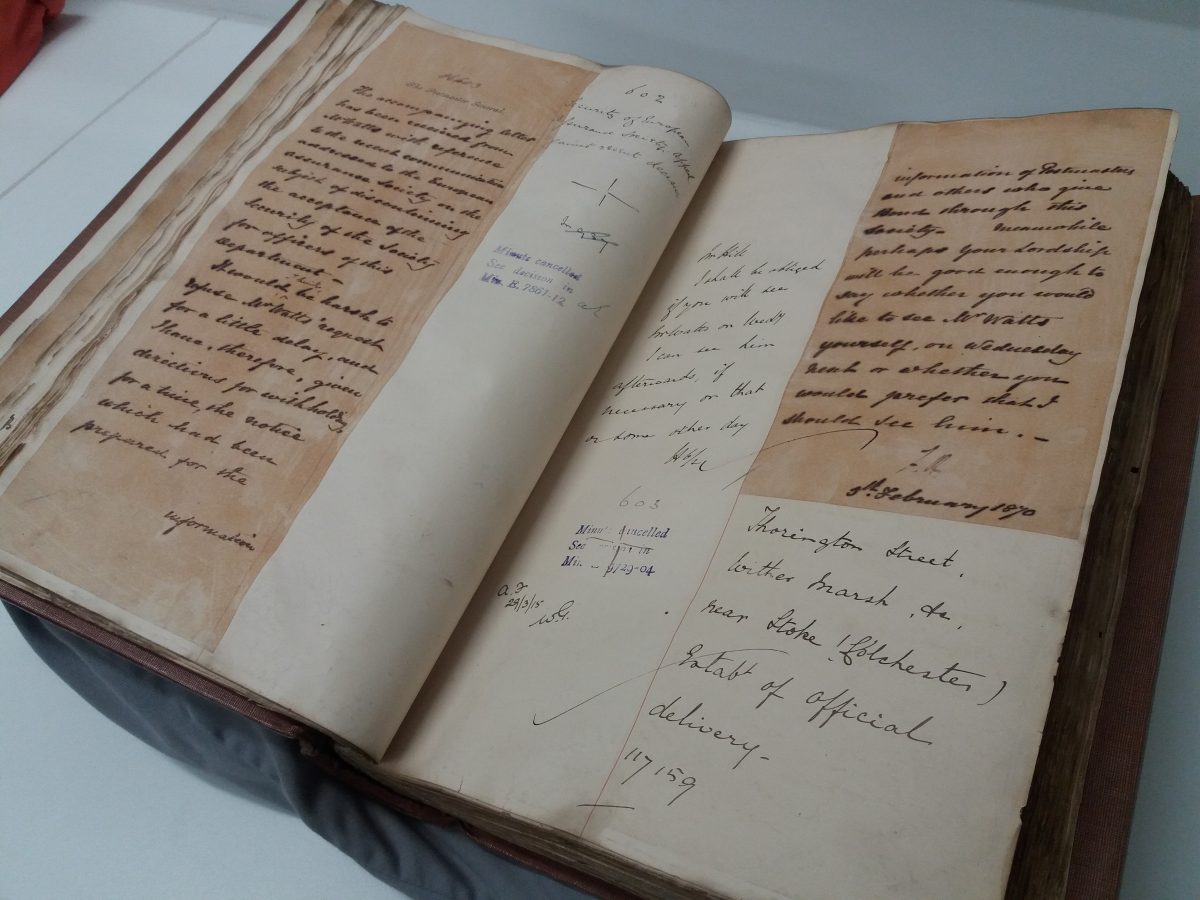 The Postmaster General
The accompanying letter
has been received from
Mr Watts with reference
to the recent communication
addressed to the European
assurance Society on the
subject of discontinuing
the acceptance of the
Security of the Society
for officers of this
Department –
It would be harsh to
refuse Mr Watts' request
for a little delay, and
I have, therefore, given
directions for withholdg
for a time, the notice
which had been
prepared for the
information
602
Security of European
Assurance Society. Appeal
against recent decision
Minute cancelled
See decision in
Min. B. 7861-12
Mr Hill
I shall be obliged
if you will see
Mr Watts on Wedy
I can see him
afterwards, if
necessary on that
or some other day
603
Minute cancelled
See in
Min 29-04
28/3/15
information of Postmasters
and others who give
Bond through this
Society – Meanwhile
perhaps your Lordship
will be good enough to
say whether you would
like to see Mr Watts
yourself, on Wednesday
next or whether you
would prefer that I
should see him. –
9th February 1870
Thorington Street,
Wither Marsh, &c,
near Stoke (Colchester)
Estabt of official
delivery –
117159